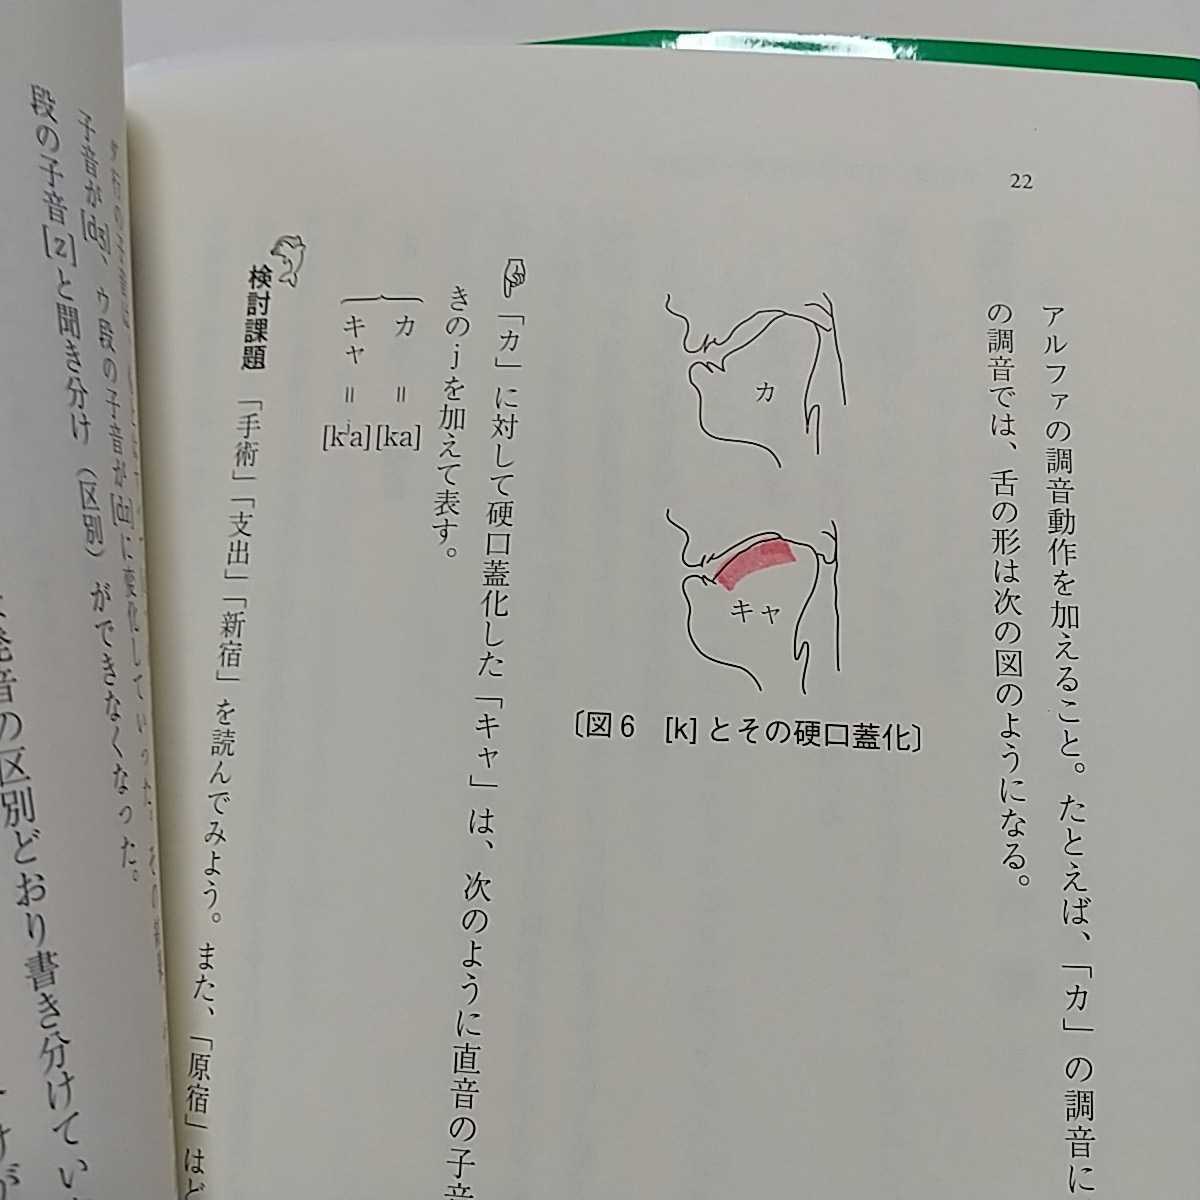 22
アルファの調音動作を加えること。たとえば、「カ」の調音に
の調音では、舌の形は次の図のようになる。
カ
キャ
〔図6　[k]とその硬口蓋化〕
「カ」に対して硬口蓋化した「キャ」は、次のように直音の子音
きのjを加えて表す。
カ＝[ka]
キャ＝[kʲa]
検討課題　「手術」「支出」「新宿」を読んでみよう。また、「原宿」はど
子音が[dʒ]、ウ段の子音が[dz]に変化していった。その結果
段の子音[z]と聞き分け（区別）ができなくなった。
発音の区別どおり書き分けてい